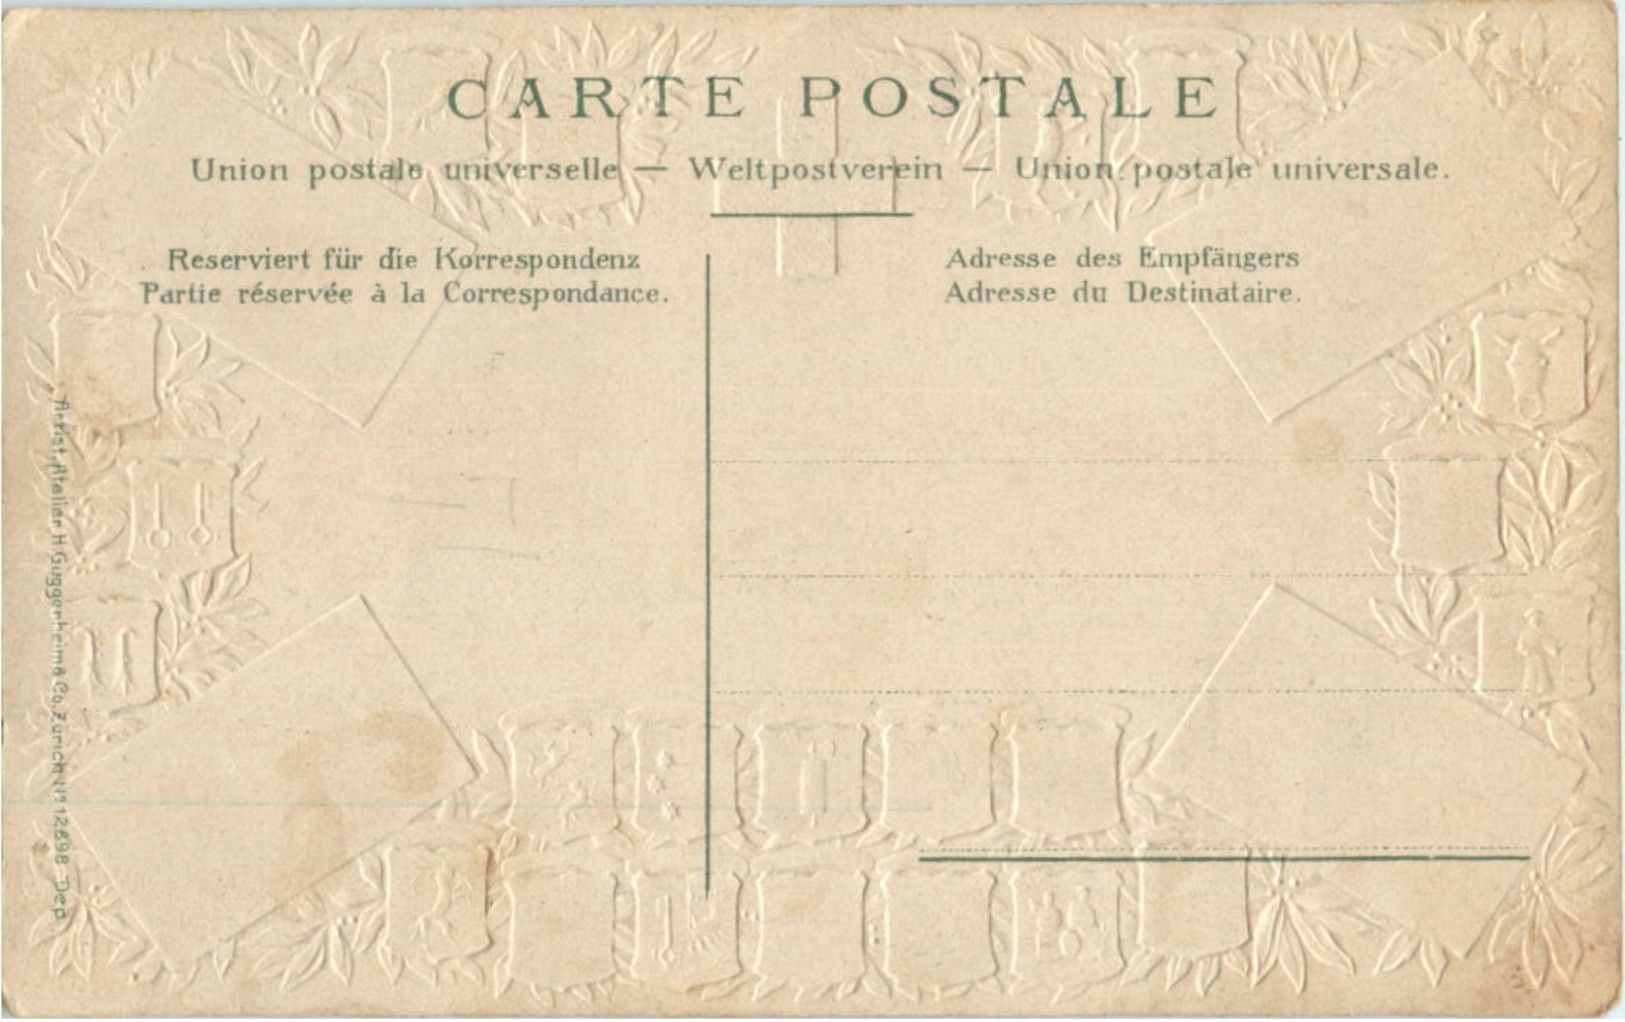 CARTE POSTALE
Union postale universelle — Weltpostverein — Union postale universale.
Reserviert für die Korrespondenz
Partie réservée à la Correspondance.
Adresse des Empfängers
Adresse du Destinataire.
Artist. Atelier H. Guggenheim & Co. Zürich Nº 12698 Dep.